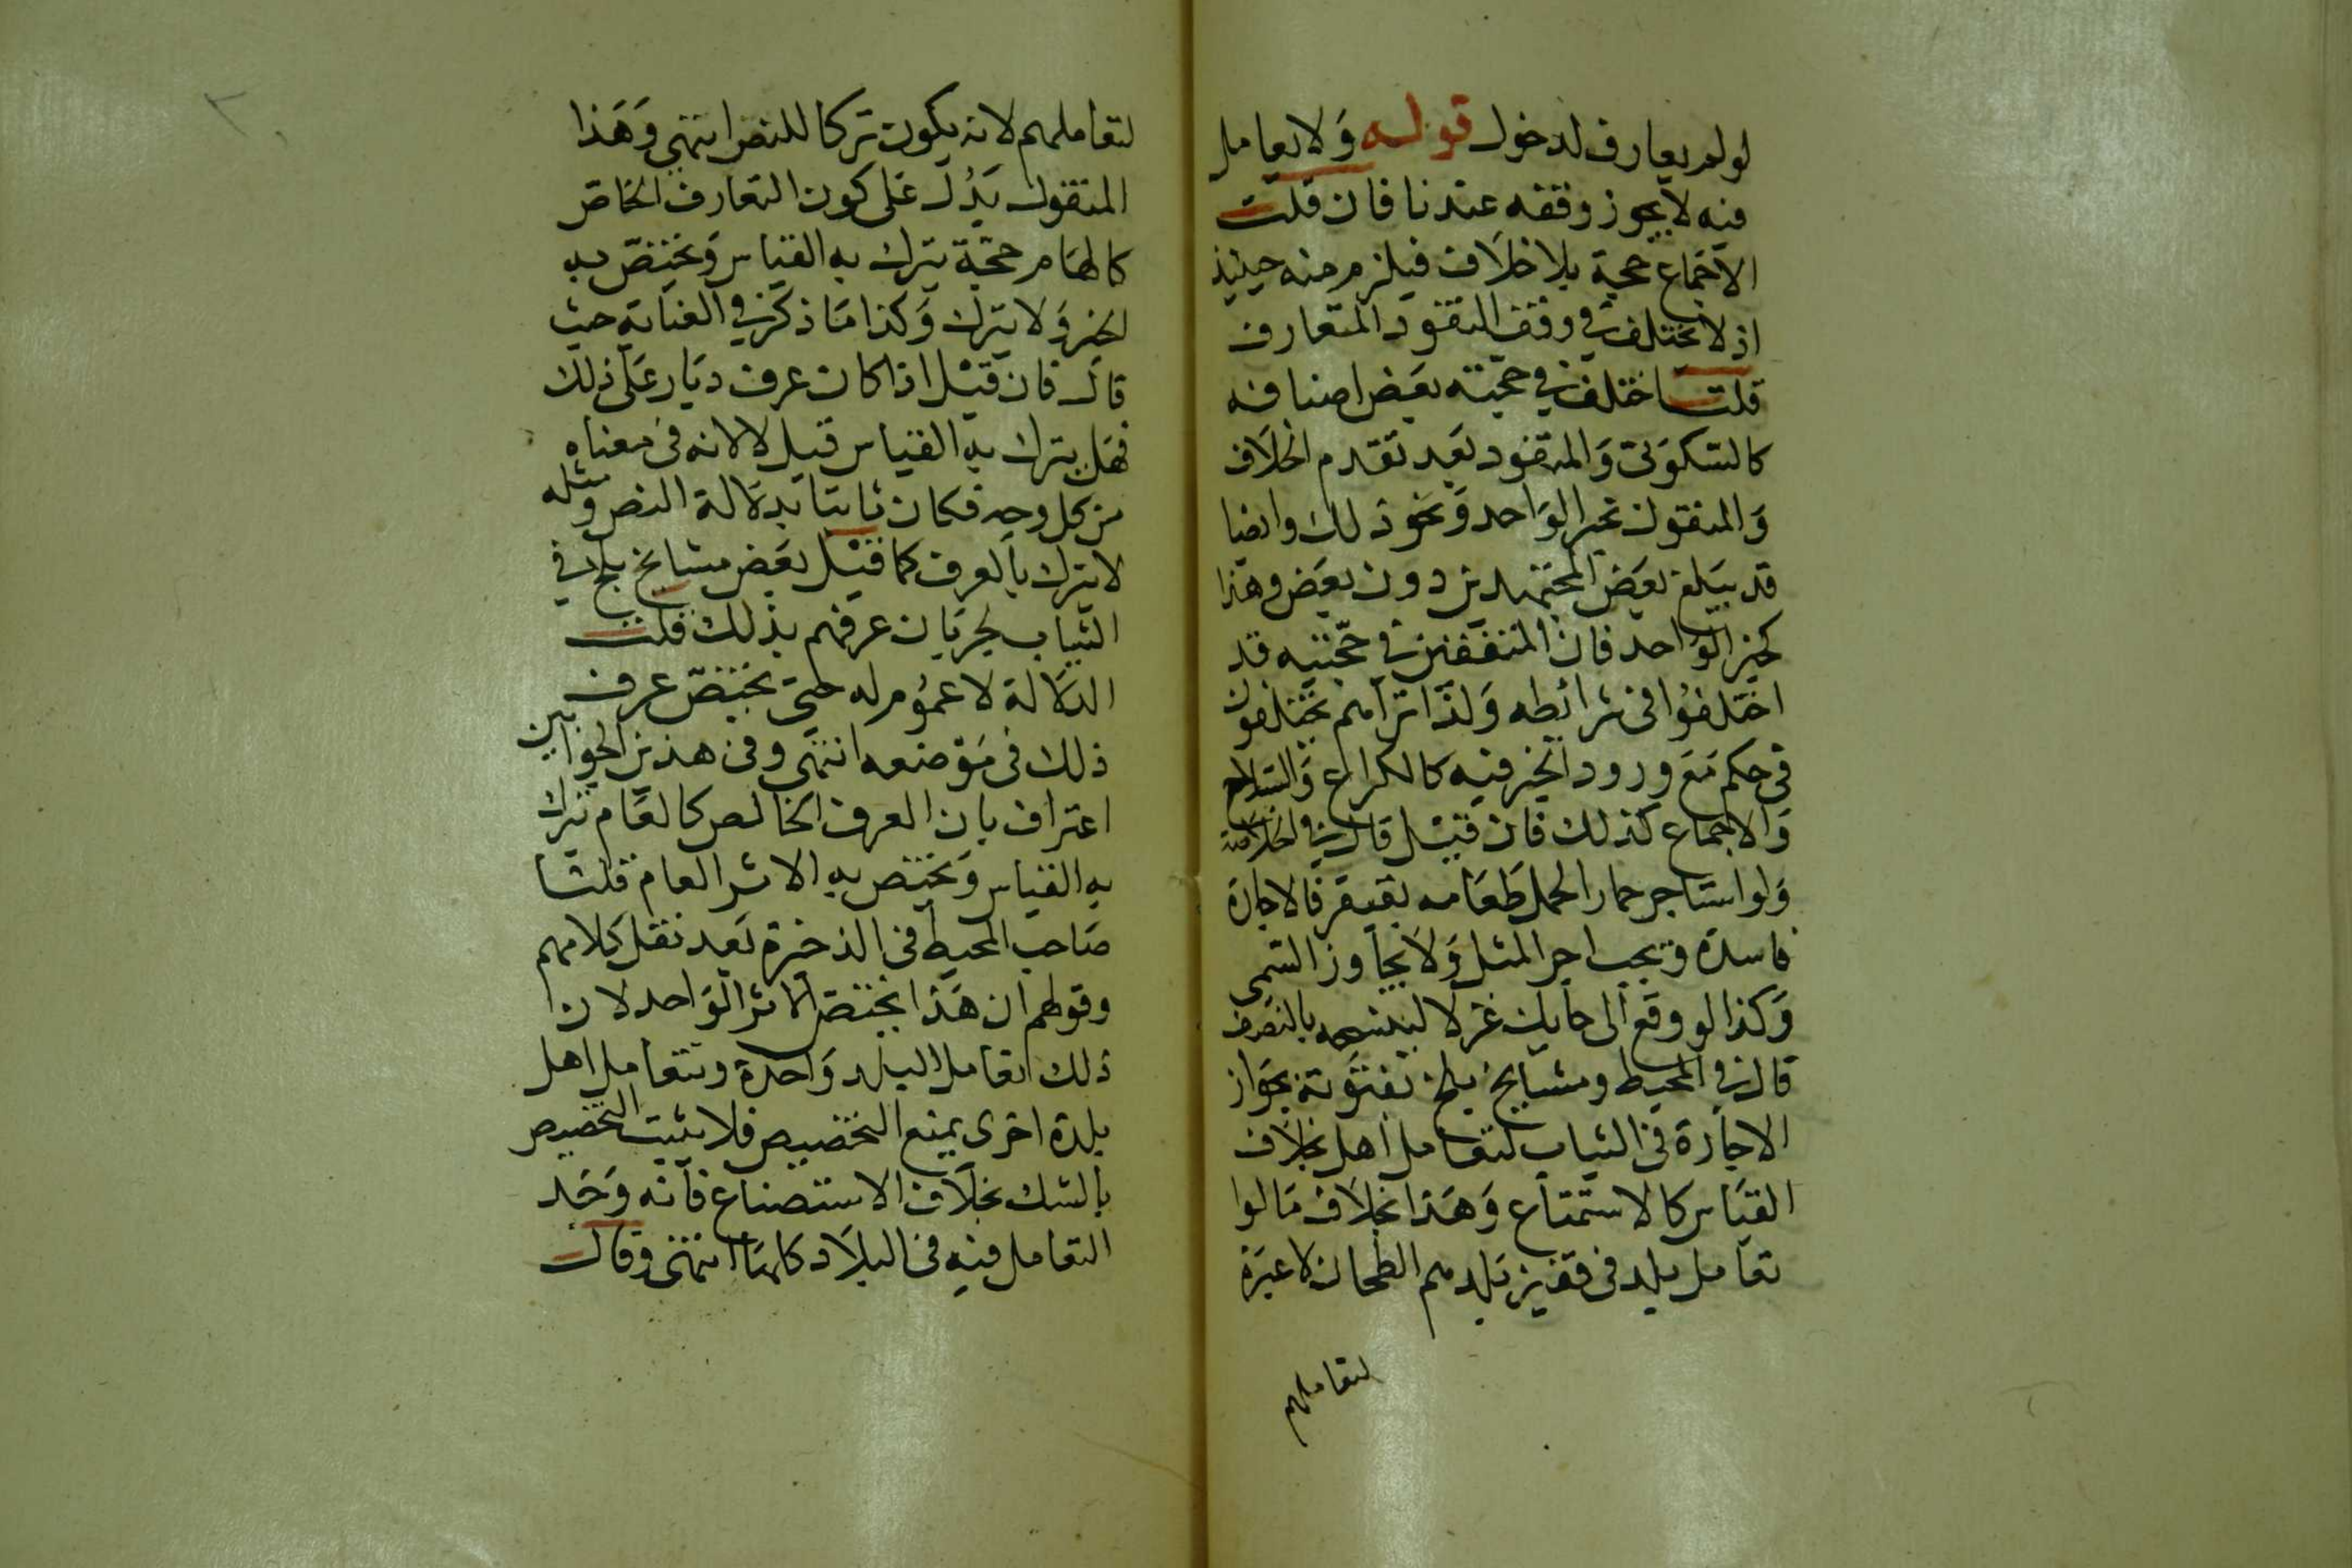 لولم يعارف لدخول قوله ولا يعامل
فيه لا يجوز وقفه عندنا فان قلت
الاجماع حجة بلا خلاف فيلزم منه حينئذ
اذ لا يختلف في وقف النقود المتعارف
قلت اختلف في حجيته بعض اصنافه
كالسكوتى والمنعقود بعد تقدم الخلاف
والمنقول بخبر الواحد ونحو ذلك وايضا
قد يبلغ بعض المجتهدين دون بعض وهذا
كخبر الواحد فان المتفقين في حجيته قد
اختلفوا فى شرائطه ولذا تراهم يختلفون
فى حكم مع ورود الخبر فيه كالكراع والسلاح
والاجماع كذلك فان قيل قال في الخلاصة
ولو استاجر حمارا لحمل طعامه بقفيز فالاجارة
فاسدة ويجب اجر المثل ولا يجاوز المسمى
وكذا لو وقع الى حايك غزلا لينسجه بالنصف
قال في المحيط ومشايخ بلخ يفتون بجواز
الاجارة فى الثياب لتعامل اهل بخلاف
القياس كالاستمتاع وهذا بخلاف مالوا
تعامل بلد فى قفيز بلدهم الطحان لا عبرة
لتعاملهم
لتعاملهم لانه يكون تركا للنص انتهى وهذا
المنقول يدل على كون التعارف الخاص
كالعام حجة يترك به القياس ويختص به
الخبر ولا يترك وكذا ما ذكر في العناية حيث
قال فان قيل اذا كان عرف ديار على ذلك
فهل يترك به القياس قيل لا لانه فى معناه
من كل وجه فكان ثابتا بدلالة النص ومثله
لا يترك بالعرف كما قيل بعض مشايخ بلخ في
الثياب لجريان عرفهم بذلك قلت
الدلالة لا عموم له حتى يختص عرف
ذلك فى موضعه انتهى وفى هذين الجوابين
اعتراف بان العرف الخالص كالعام يترك
به القياس ويختص به الاثر العام قلت
صاحب المحيط فى الذخيرة بعد نقل كلامهم
وقولهم ان هذا يختص الاثر الواحد لان
ذلك تعامل البلد واحدة وتعامل اهل
بلدة اخرى يمنع التخصيص فلا يثبت التخصيص
بالشك بخلاف الاستصناع فانه وجد
التعامل فيه فى البلاد كلها انتهى وقال